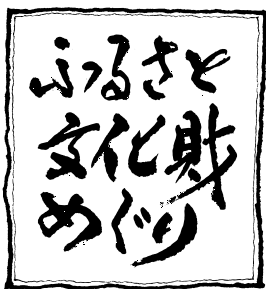 ふるさと
文化財
めぐり